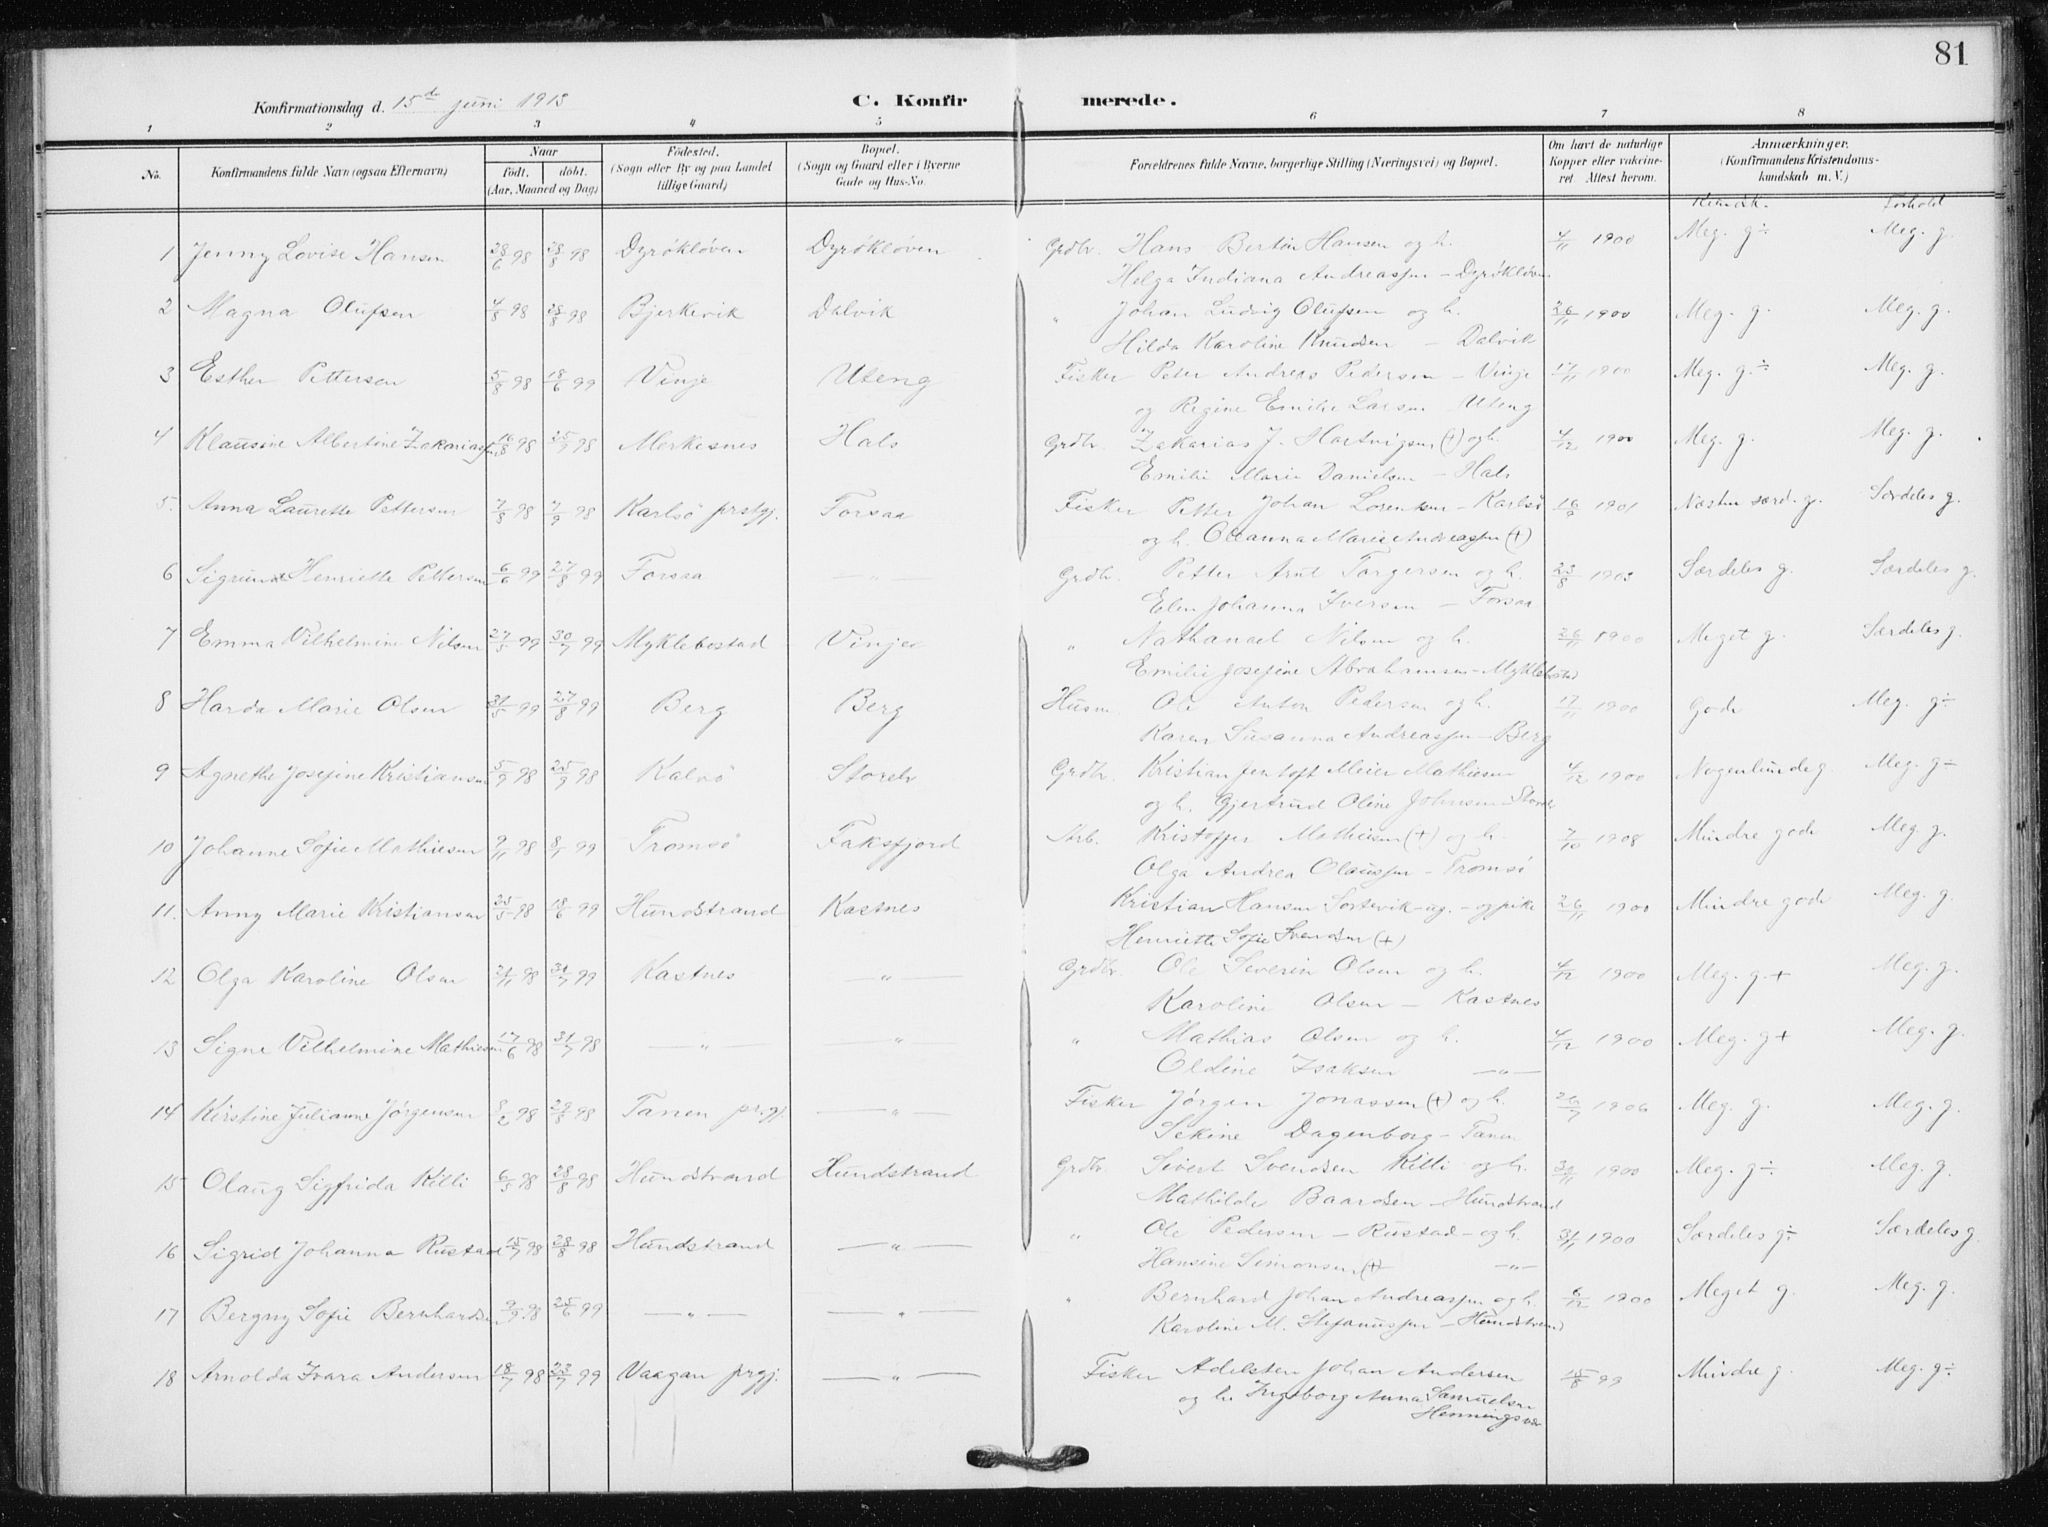 81
Konfirmationsdag d. 15de juni 1913 C. Konfirmerede.
1 2 3 4 5 6 7 8
No. Konfirmandens fulde Navn (ogsaa Efternavn) Naar født. døbt. (Aar, Maaned og Dag) Fødested. (Sogn eller By og paa Landet tillige Gaard) Bopæl. (Sogn og Gaard eller i Byerne Gade og Hus-No. Forældrenes fulde Navne, borgerlige Stilling (Næringsvei) og Bopæl. Om havt de naturlige Kopper eller vakcineret. Attest herom. Anmærkninger. (Konfirmandens Kristendomskundskab m. V.)
Forhold
1 Jenny Lovise Hansen 28/6 98 28/8 98 Dyrøkløven Dyrøkløven Grdbr. Hans Bertin Hansen og h. 4/11 1900 Meg. g÷ Meg. g.
Helga Indiana Andreassen – Dyrøkløven
2 Magna Olufsen 4/8 98 28/8 98 Bjerkevik Dalvik " Johan Ludvig Olufsen og h. 26/11 1900 Meg. g. Meg. g.
Hilda Karoline Knudsen – Dalvik
3 Esther Pettersen 5/8 98 18/6 99 Vinje Uteng Fisker Peter Andreas Pedersen – Vinje 17/11 1900 Meg. g.÷ Meg. g.
og Regine Emilie Larsen Uteng
4 Klausine Albertine Zakariassen 16/8 98 25/9 98 Merkesnes Hals Grdbr. Zakarias J. Hartvigsen (+) og h. 4/12 1900 Meg. g. Meg. g.
Emilie Marie Danielsen – Hals
5. Anna Laurette Pettersen 7/8 98 7/9 98 Karlsö prstgj. Forsaa Fisker Petter Johan Lorentsen – Karlsö 16/9 1901 Næsten særd. g. Særdeles g.
og h. Oleanna Marie Andreassen (+)
6 Sigrun Henriette Pettersen 6/6 99 27/8 99 Forsaa — " Grdbr. Petter Arnt Torgersen og h. 23/8 1903 Særdeles g. Særdeles g.
Elen Johanna Iversen – Forsaa
7 Emma Vilhelmine Nilsen 27/5 99 30/7 99 Myklebostad Vinje " Nathanael Nilsen og h. 26/11 1900 Meget g. Særdeles g.
Emilie Josefine Abrahamsen – Myklebostad
8 Harda Marie Olsen 31/5 99 27/8 99 Berg Berg Husm. Ole Anton Pedersen og h. 17/11 1900 Gode Meg. g÷
Karen Susanna Andreassen – Berg
9 Agnethe Josefine Kristiansen 5/9 98 25/9 98 Kalvö Storelv Grdbr. Kristian Jentoft Meier Mathiesen 4/12 1900 Nogenlunde g. Meg. g÷
og h. Gjertrud Oline Johnsen – Storelv
10 Johanne Sofie Mathiesen 9/11 98 8/1 99 Tromsö Faksfjord Arb. Kristoffer Mathiesen (+) og h. 7/10 1908 Mindre gode Meg. g.
Olga Andrea Olaussen – Tromsö
11. Anny Marie Kristiansen 25/5 98 18/6 99 Hundstrand Kastnes Kristian Hansen Sortevik – ug. – og pike 26/11 1900 Mindre gode Meg. g.
Henriette Sofie Svendsen (+)
12 Olga Karoline Olsen 21/11 98 31/7 99 Kastnes — " — Grdbr. Ole Severin Olsen og h. 4/12 1900 Meg. g.+ Meg. g.
Karoline Olsen – Kastnes
13 Signe Vilhelmine Mathiesen 17/6 98 31/7 98 — " — — " — " Mathias Olsen og h. 4/12 1900 Meg. g+ Meg. g.
Oldine Isaksen — " —
14 Kirstine Julianne Jørgensen 8/2 98 29/8 98 Tanen pr.gj. — " — Fisker Jørgen Jonassen (+) og h. 26/7 1906 Meg. g. Meg. g.
Sekine Dagenborg – Tanen
15 Olaug Sigfrida Killi 6/5 98 28/8 98 Hundstrand Hundstrand Grdbr. Sivert Svendsen Killi og h. 30/11 1900 Meg. g÷ Meg. g.
Mathilde Baardsen – Hundstrand
16 Sigrid Johanna Rustad 15/7 98 28/8 98 Hundstrand — " — " Ole Pedersen – Rustad – og h. 31/11 1900 Særdeles g÷ Særdeles g.
Hansine Simonsen (+) — " —
17 Bergny Sofie Bernhardsen 9/9 98 25/6 99 — " — — " — " Bernhard Johan Andreassen og h. 6/12 1900 Meget g. Meg. g.
Karoline M. Stefanussen – Hundstrand
18 Arnolda Ivara Andersen 18/7 98 23/7 99 Vaagan prgj. — " — Fisker Adelsten Johan Andersen 15/8 99 Mindre g. Meg. g÷
og h. Ingeborg Anna Samuelsen
Henningsvær